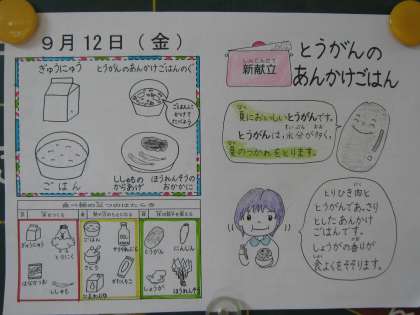 9月12日（金）
ぎゅうにゅう
とうがんのあんかけごはんのぐ
ごはんに
かけて
たべよう
ごはん
ししゃもの
からあげ
ほうれんそうの
おかかに
食べ物の三つのはたらき
ぎゅうにゅう
とりにく
はなかつお
ししゃも
ごはん
さとう
でんぷん
かたくりこ
とうがん
にんじん
しょうが
ほうれんそう
しんこんだて
新献立
とうがんの
あんかけごはん
夏においしいとうがんです。
とうがんは、水分が多く、
夏のつかれをとります。
とりひき肉と
とうがんであっさり
としたあんかけ
ごはんです。
しょうがの香りが
食よくをそそります。